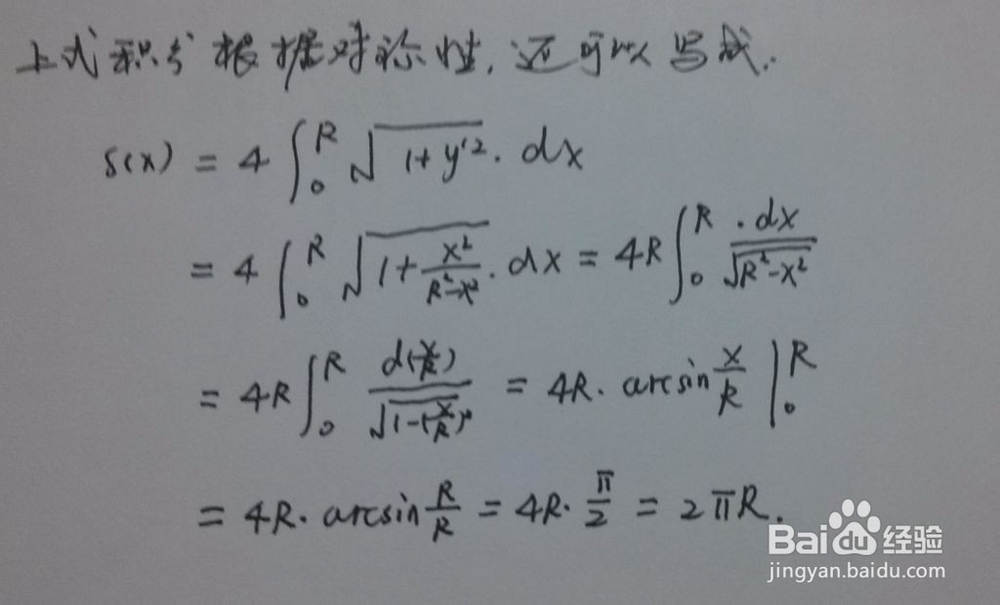 上式积分根据对称性,还可以写成..
S(x) = 4 ∫₀ᴿ √(1+y'²) · dx
= 4 ∫₀ᴿ √(1+x²/(R²-x²)) · dx = 4R ∫₀ᴿ ·dx/√(R²-x²)
= 4R ∫₀ᴿ d(x/R)/√(1-(x/R)²) = 4R · arcsin x/R |₀ᴿ
= 4R · arcsin R/R = 4R · π/2 = 2πR.
Baidu经验
jingyan.baidu.com